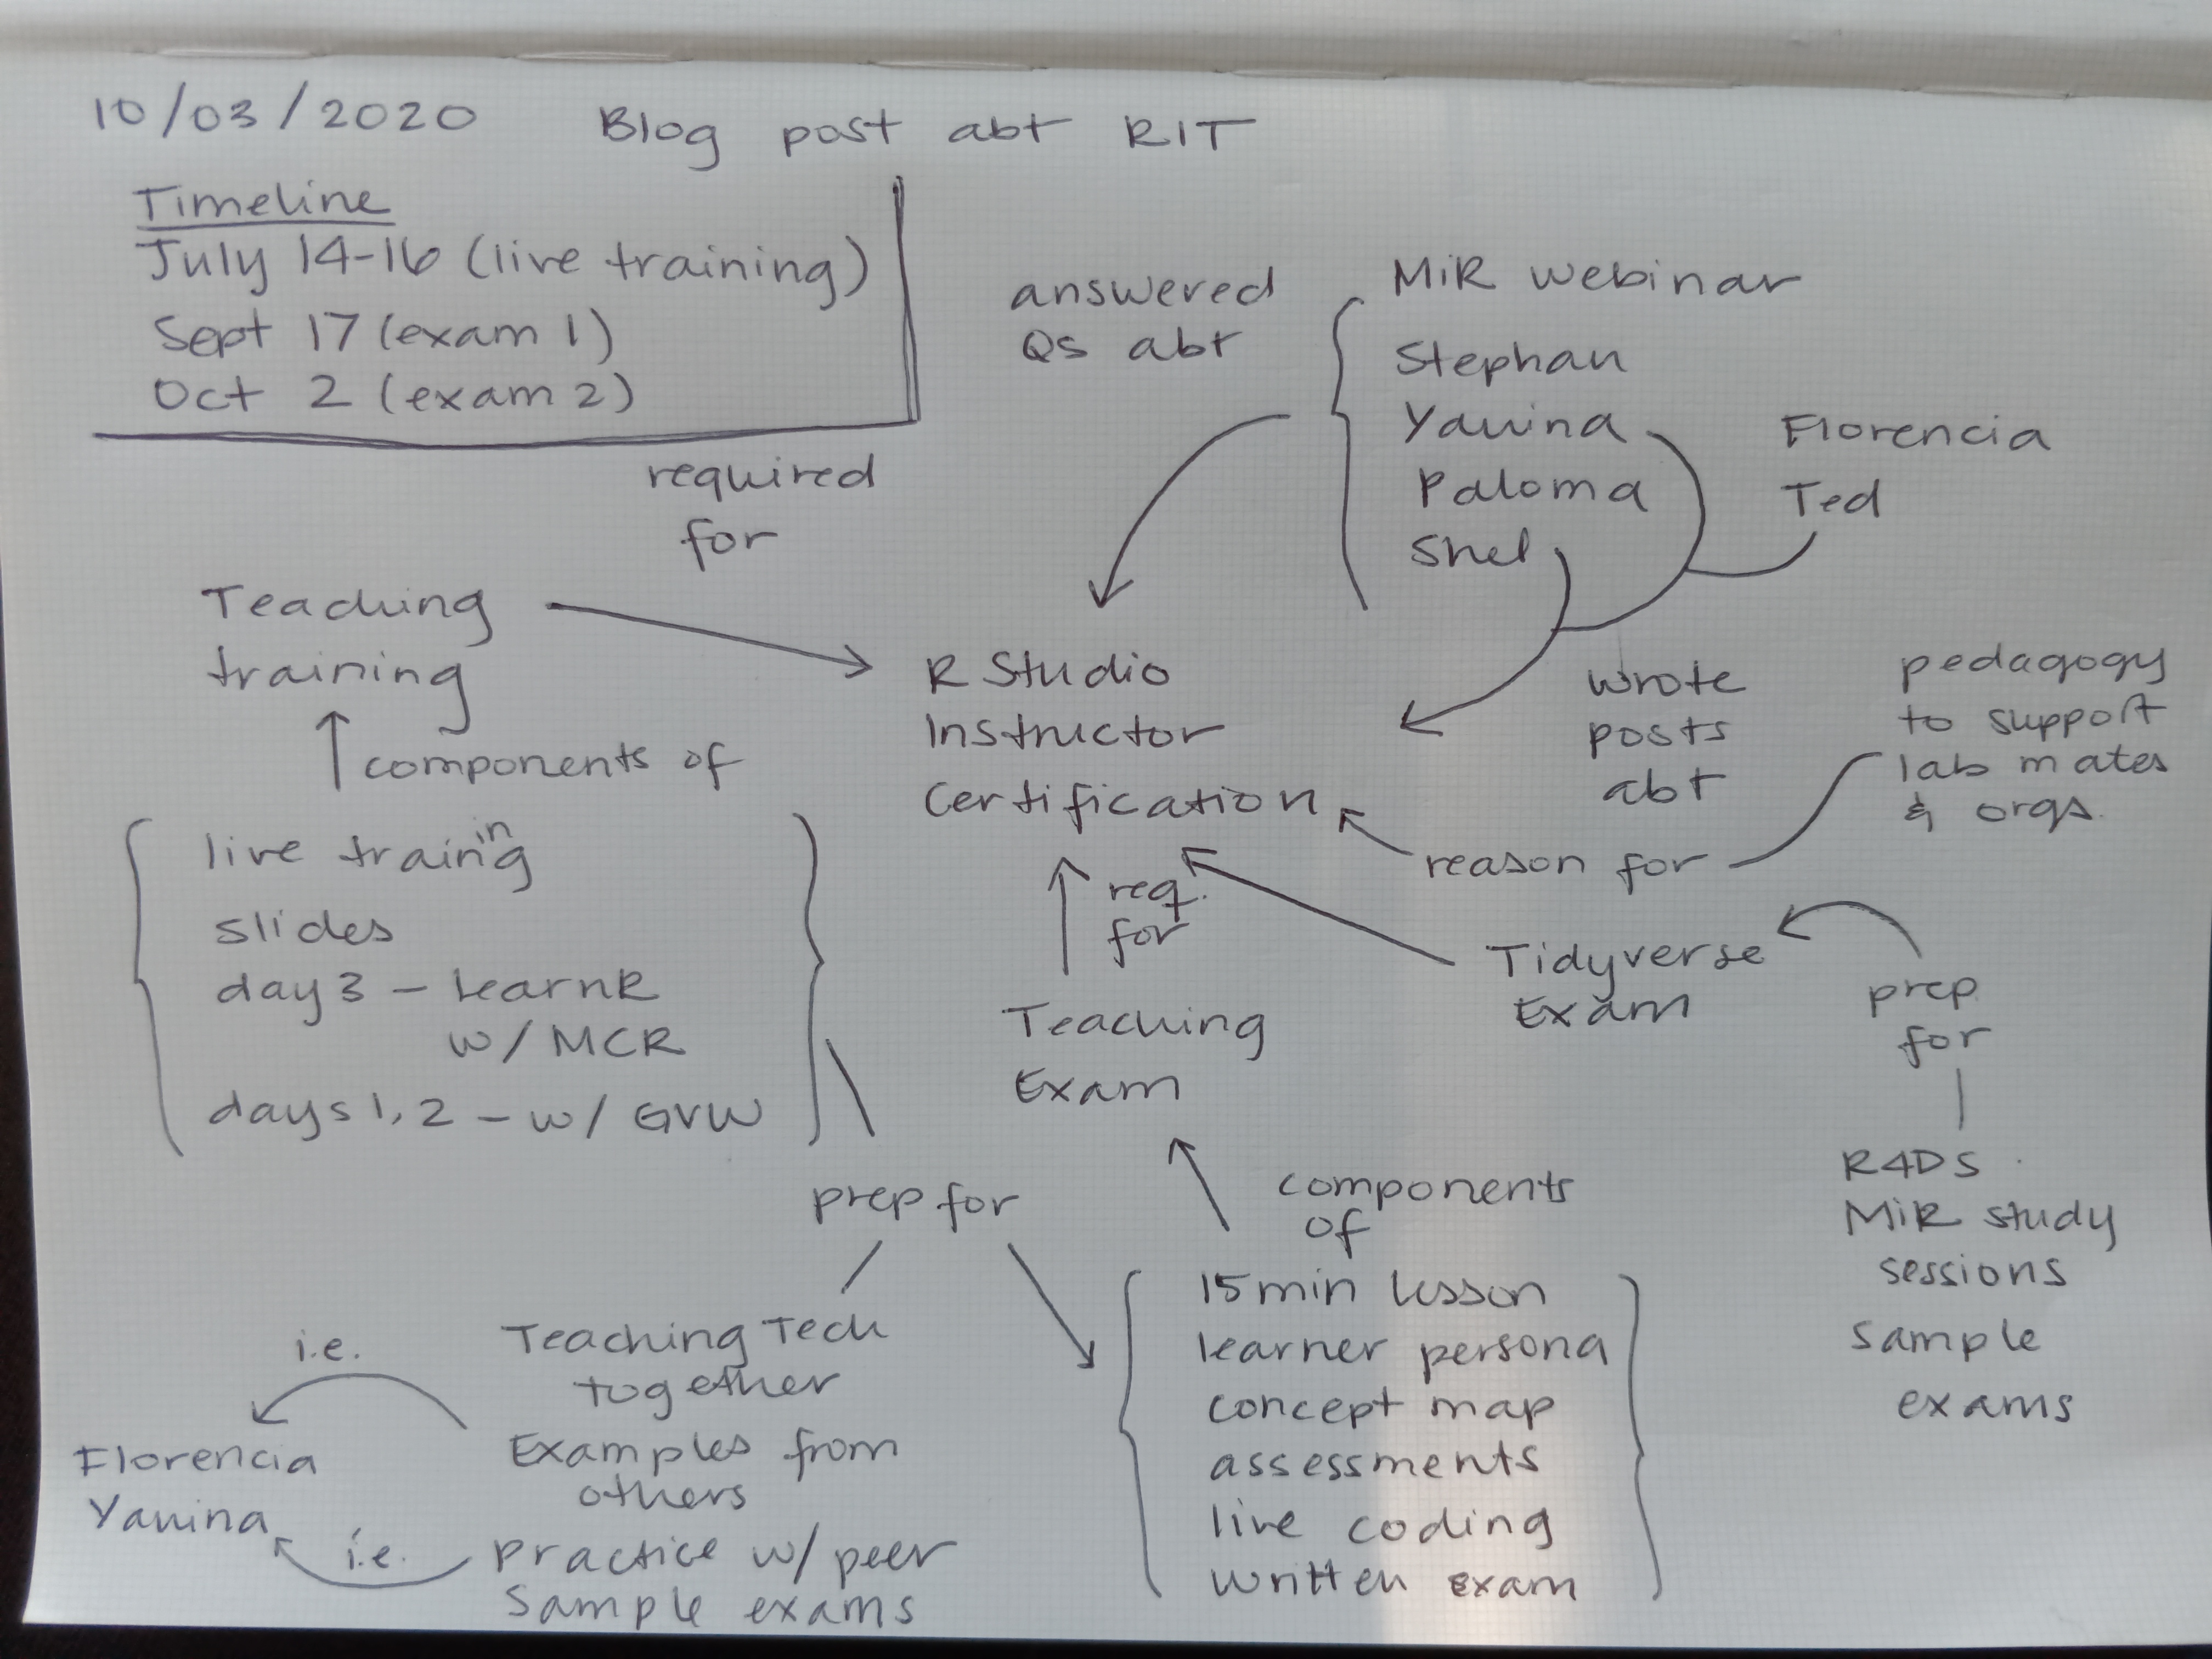 10/03/2020 Blog post abt RIT
Timeline
July 14-16 (live training)
Sept 17 (exam 1)
Oct 2 (exam 2)
answered
Qs abt
MiR webinar
Stephan
Yanina
Paloma
Shel
Florencia
Ted
required
for
Teaching
training
components of
R Studio
Instructor
Certification
wrote
posts
abt
pedagogy
to support
lab mates
& orgs.
reason for
live training
slides
day 3 - LearnR
w/ MCR
days 1, 2 - w/ GVW
req.
for
Teaching
Exam
Tidyverse
Exam
prep
for
R4DS
MiR study
sessions
sample
exams
prep for
components
of
15 min lesson
learner persona
concept map
assessments
live coding
written exam
Teaching Tech
together
Examples from
others
Practice w/ peer
Sample exams
i.e.
Florencia
Yanina
i.e.